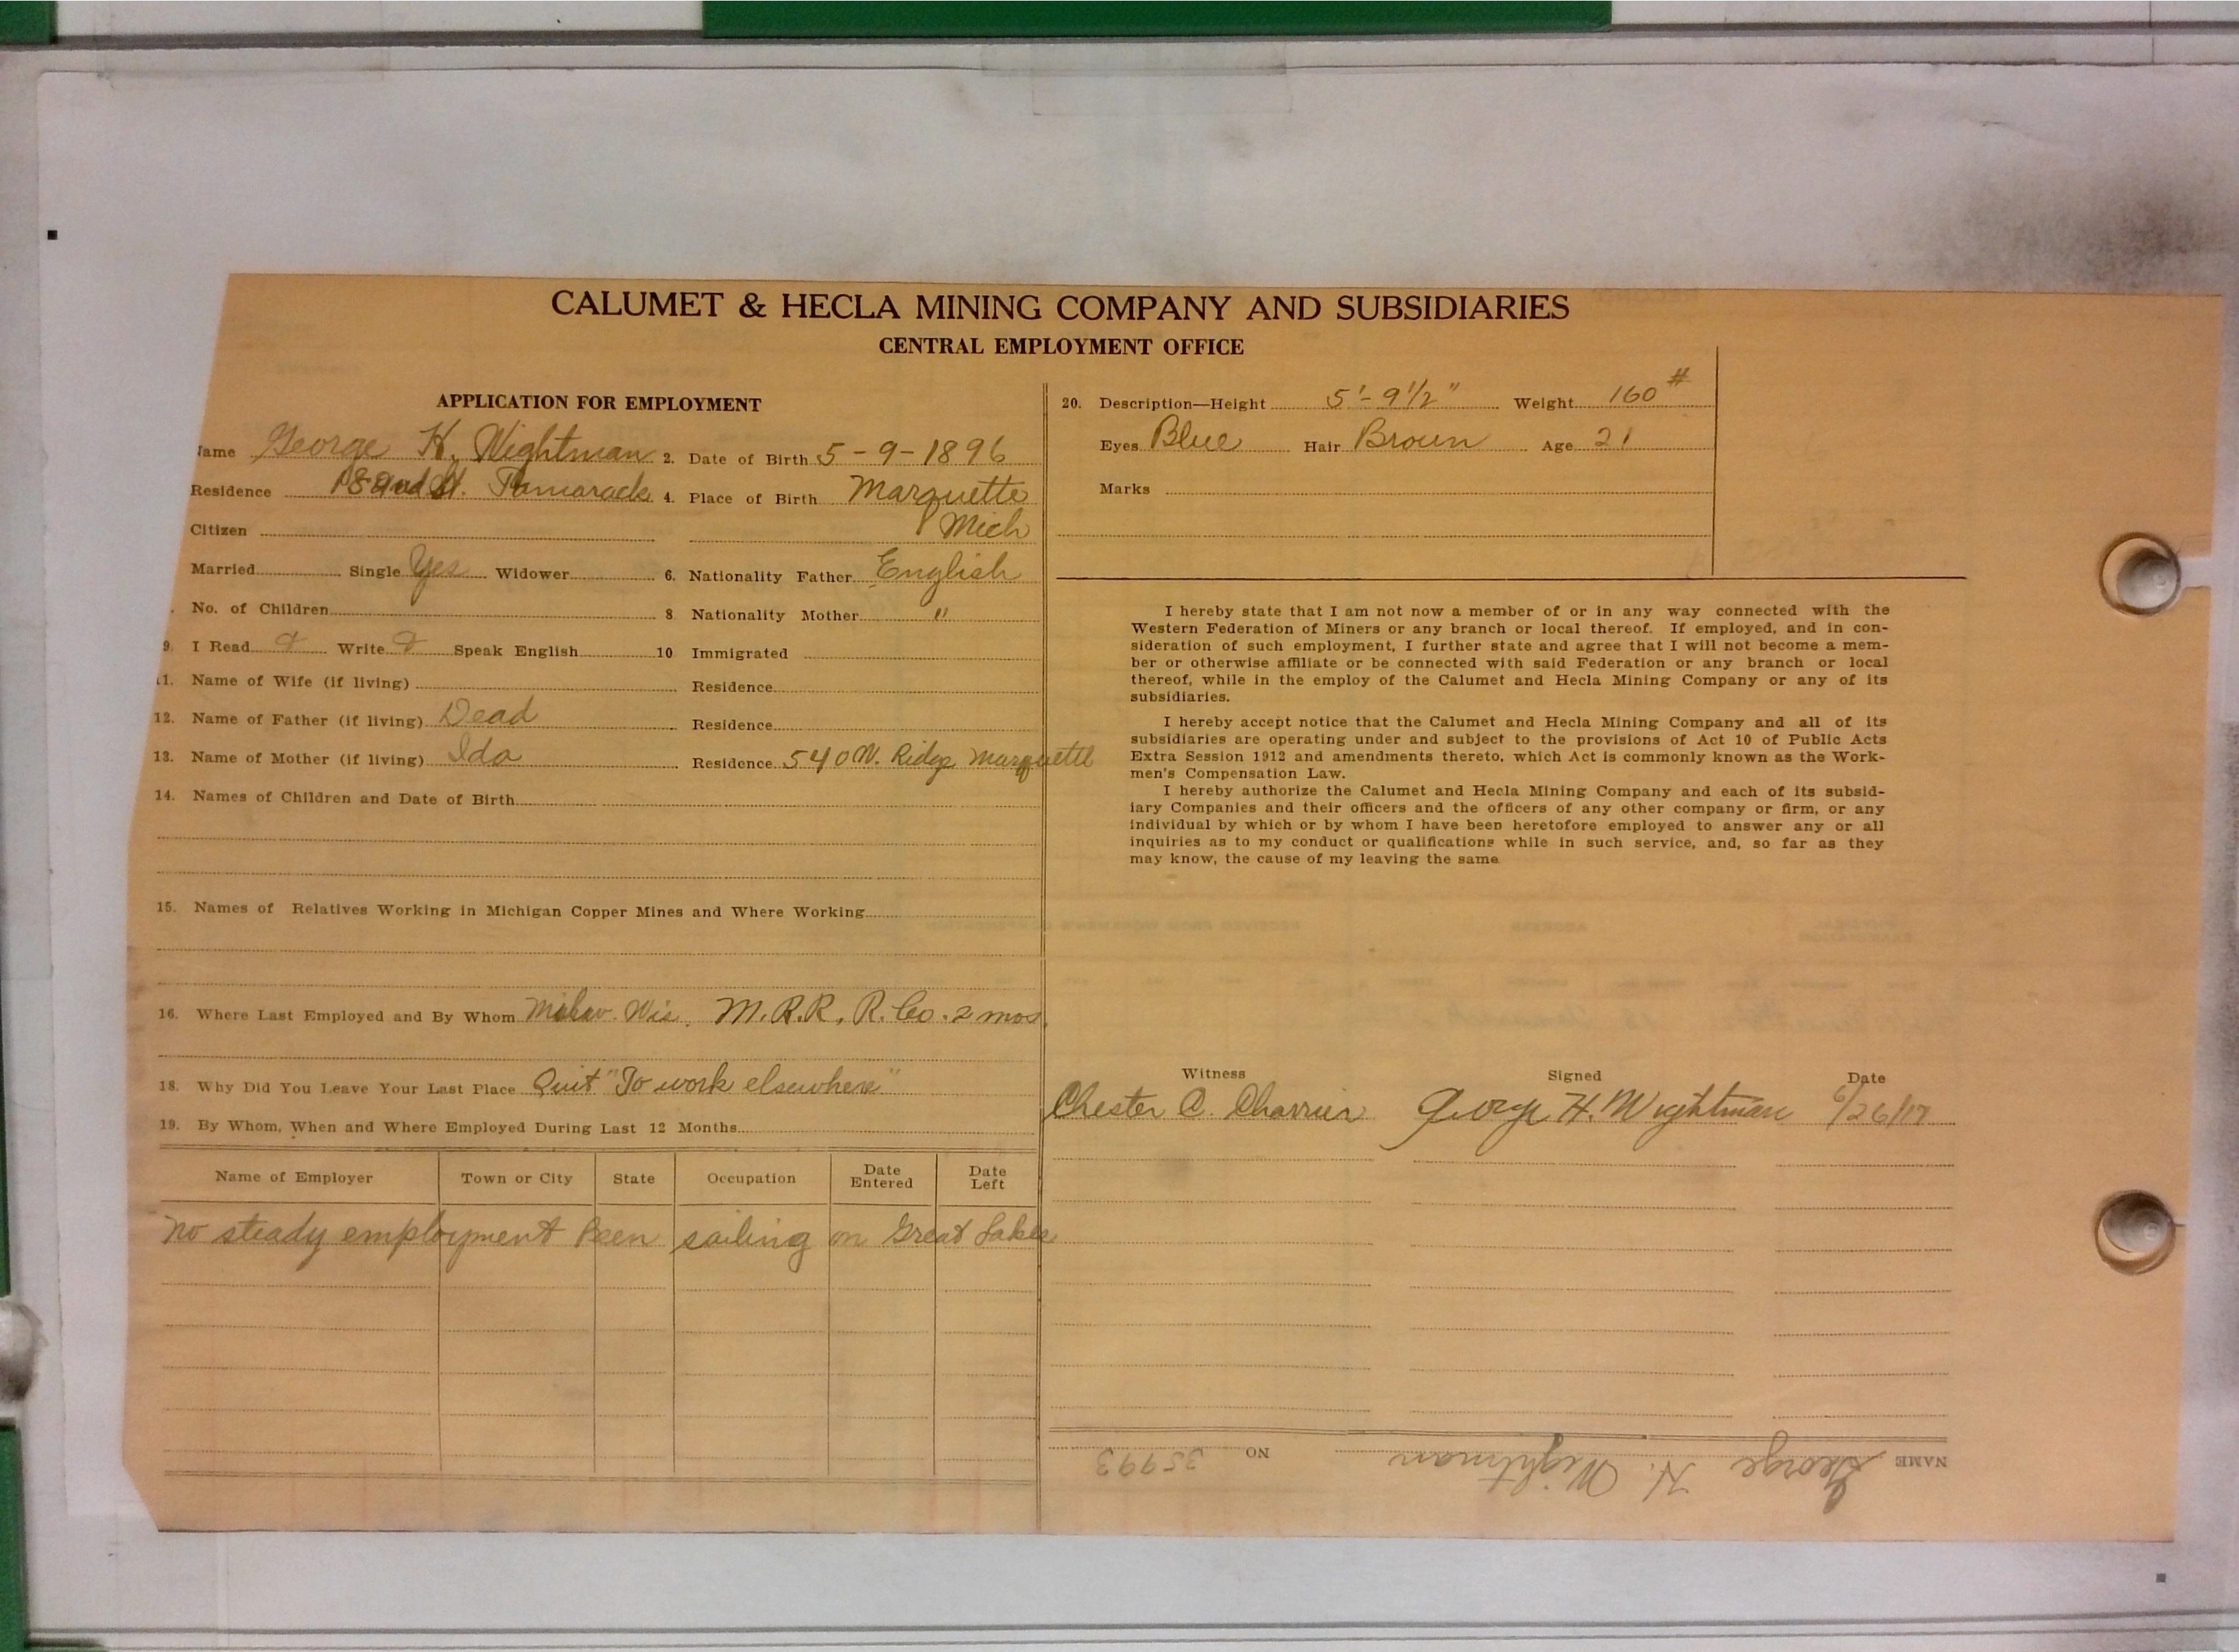 CALUMET & HECLA MINING COMPANY AND SUBSIDIARIES
CENTRAL EMPLOYMENT OFFICE
APPLICATION FOR EMPLOYMENT
Name George H. Wightman 2. Date of Birth 5-9-1896
Residence St. Tamarack 4. Place of Birth Marquette
Citizen Mich
Married Single Yes Widower 6. Nationality Father English
No. of Children 8 Nationality Mother "
9. I Read Write Speak English 10 Immigrated
11. Name of Wife (if living) Residence
12. Name of Father (if living) Dead Residence
13. Name of Mother (if living) Ida Residence 540 N. Ridge Marquette
14. Names of Children and Date of Birth
15. Names of Relatives Working in Michigan Copper Mines and Where Working
16. Where Last Employed and By Whom Milw. Wis. M.R.R. R. Co. 2 mos.
18. Why Did You Leave Your Last Place Quit "To work elsewhere"
19. By Whom, When and Where Employed During Last 12 Months
Name of Employer Town or City State Occupation Date Entered Date Left
No steady employment Been sailing on Great Lakes
20. Description—Height 5'-9 1/2" Weight 160 #
Eyes Blue Hair Brown Age 21
Marks
I hereby state that I am not now a member of or in any way connected with the
Western Federation of Miners or any branch or local thereof. If employed, and in con-
sideration of such employment, I further state and agree that I will not become a mem-
ber or otherwise affiliate or be connected with said Federation or any branch or local
thereof, while in the employ of the Calumet and Hecla Mining Company or any of its
subsidiaries.
I hereby accept notice that the Calumet and Hecla Mining Company and all of its
subsidiaries are operating under and subject to the provisions of Act 10 of Public Acts
Extra Session 1912 and amendments thereto, which Act is commonly known as the Work-
men's Compensation Law.
I hereby authorize the Calumet and Hecla Mining Company and each of its subsid-
iary Companies and their officers and the officers of any other company or firm, or any
individual by which or by whom I have been heretofore employed to answer any or all
inquiries as to my conduct or qualifications while in such service, and, so far as they
may know, the cause of my leaving the same
Witness Signed Date
Chester C. Charrier George H. Wightman 6/26/17
NAME George H. Wightman NO 35993